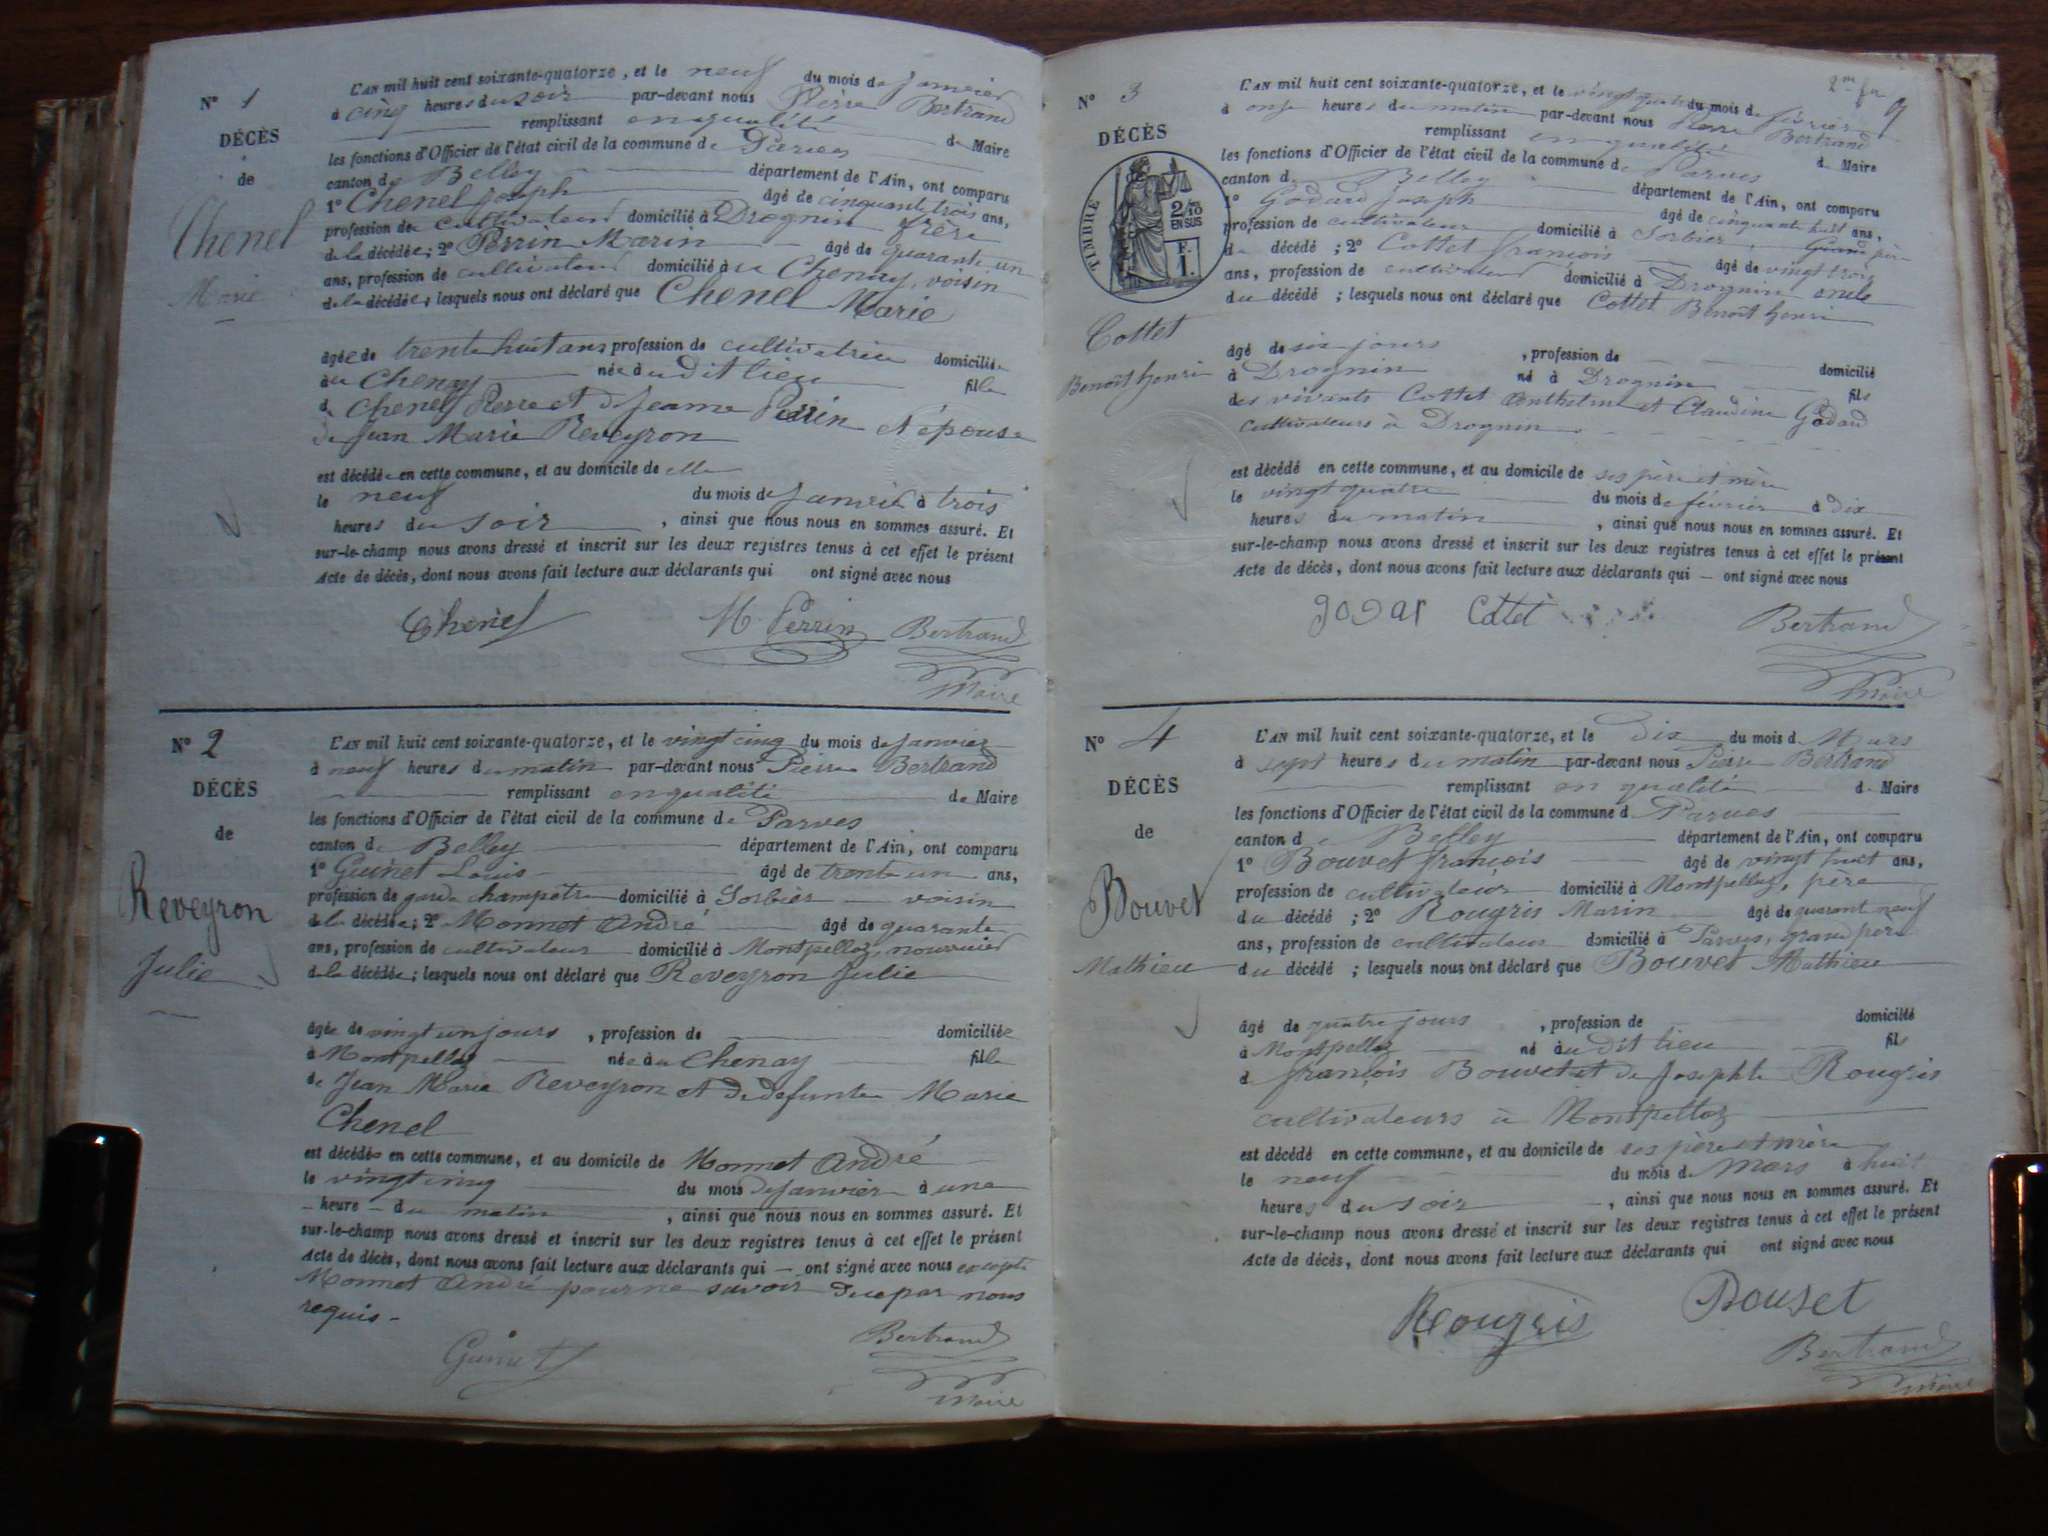 N° 1
DÉCÈS
de
Chenel
Marie
L'AN mil huit cent soixante-quatorze, et le neuf du mois de janvier
à cinq heures du soir par-devant nous Pierre Bertrand
remplissant en qualité de Maire
les fonctions d'Officier de l'état civil de la commune de Parves
canton de Belley département de l'Ain, ont comparu
1° Chenel Joseph âgé de cinquant trois ans,
profession de cultivateur domicilié à Drognin frère
de la décédée; 2° Perrin Marin âgé de quarante un
ans, profession de cultivateur domicilié au Chenay, voisin
de la décédée, lesquels nous ont déclaré que Chenel Marie
âgée de trente huit ans profession de cultivatrice domiciliée
au Chenay née au dit lieu fille
de Chenel Pierre et de Jeanne Perrin et épouse
de Jean Marie Reveyron
est décédée en cette commune, et au domicile de elle
le neuf du mois de janvier à trois
heures du soir, ainsi que nous nous en sommes assuré. Et
sur-le-champ nous avons dressé et inscrit sur les deux registres tenus à cet effet le présent
Acte de décès, dont nous avons fait lecture aux déclarants qui ont signé avec nous
Chenel M. Perrin Bertrand
Maire
N° 2
DÉCÈS
de
Reveyron
Julie
L'AN mil huit cent soixante-quatorze, et le vingt cinq du mois de janvier
à neuf heures du matin par-devant nous Pierre Bertrand
remplissant en qualité de Maire
les fonctions d'Officier de l'état civil de la commune de Parves
canton de Belley département de l'Ain, ont comparu
1° Guinet Louis âgé de trente un ans,
profession de garde champêtre domicilié à Sorbier voisin
de la décédée; 2° Monnet André âgé de quarante
ans, profession de cultivateur domicilié à Montpellaz, nourricier
de la décédée; lesquels nous ont déclaré que Reveyron Julie
âgée de vingt un jours, profession de domiciliée
à Montpellaz née au Chenay fille
de Jean Marie Reveyron et de defunte Marie
Chenel
est décédée en cette commune, et au domicile de Monnet André
le vingt cinq du mois de janvier à une
heure du matin, ainsi que nous nous en sommes assuré. Et
sur-le-champ nous avons dressé et inscrit sur les deux registres tenus à cet effet le présent
Acte de décès, dont nous avons fait lecture aux déclarants qui ont signé avec nous excepté
Monnet André pour ne savoir de ce par nous
requis.
Guinet Bertrand
Maire
N° 3
DÉCÈS
TIMBRE
2/10
EN SUS
F.
1.
Cottet
Benoît henri
L'AN mil huit cent soixante-quatorze, et le vingt quatre du mois de février
à onze heures du matin par-devant nous Pierre Bertrand
remplissant en qualité de Maire
les fonctions d'Officier de l'état civil de la commune de Parves
canton de Belley département de l'Ain, ont comparu
1° Godard Joseph âgé de cinquante huit ans,
profession de cultivateur domicilié à Sorbier, Grand père
du décédé; 2° Cottet françois âgé de vingt trois
ans, profession de cultivateur domicilié à Drognin oncle
du décédé; lesquels nous ont déclaré que Cottet Benoît henri
âgé de six jours, profession de domicilié
à Drognin né à Drognin fils
des vivants Cottet Anthelme et Claudine Godard
cultivateurs à Drognin
est décédé en cette commune, et au domicile de ses père et mère
le vingt quatre du mois de février à dix
heures du matin, ainsi que nous nous en sommes assuré. Et
sur-le-champ nous avons dressé et inscrit sur les deux registres tenus à cet effet le présent
Acte de décès, dont nous avons fait lecture aux déclarants qui — ont signé avec nous
godar Cottet Bertrand
Maire
N° 4
DÉCÈS
de
Bouvet
Mathieu
L'AN mil huit cent soixante-quatorze, et le Dix du mois de Mars
à sept heures du matin par-devant nous Pierre Bertrand
remplissant en qualité de Maire
les fonctions d'Officier de l'état civil de la commune de Parves
canton de Belley département de l'Ain, ont comparu
1° Bouvet françois âgé de vingt huit ans,
profession de cultivateur domicilié à Montpellaz, père
du décédé; 2° Rougris Marin âgé de quarant neuf
ans, profession de cultivateur domicilié à Parves, grand père
du décédé; lesquels nous ont déclaré que Bouvet Mathieu
âgé de quatre jours, profession de domicilié
à Montpellaz né au dit lieu fils
de françois Bouvet et de Josephte Rougris
cultivateurs à Montpellaz
est décédé en cette commune, et au domicile de ses père et mère
le neuf du mois de Mars à huit
heures du soir, ainsi que nous nous en sommes assuré. Et
sur-le-champ nous avons dressé et inscrit sur les deux registres tenus à cet effet le présent
Acte de décès, dont nous avons fait lecture aux déclarants qui ont signé avec nous
Rougris Bouvet
Bertrand
Maire